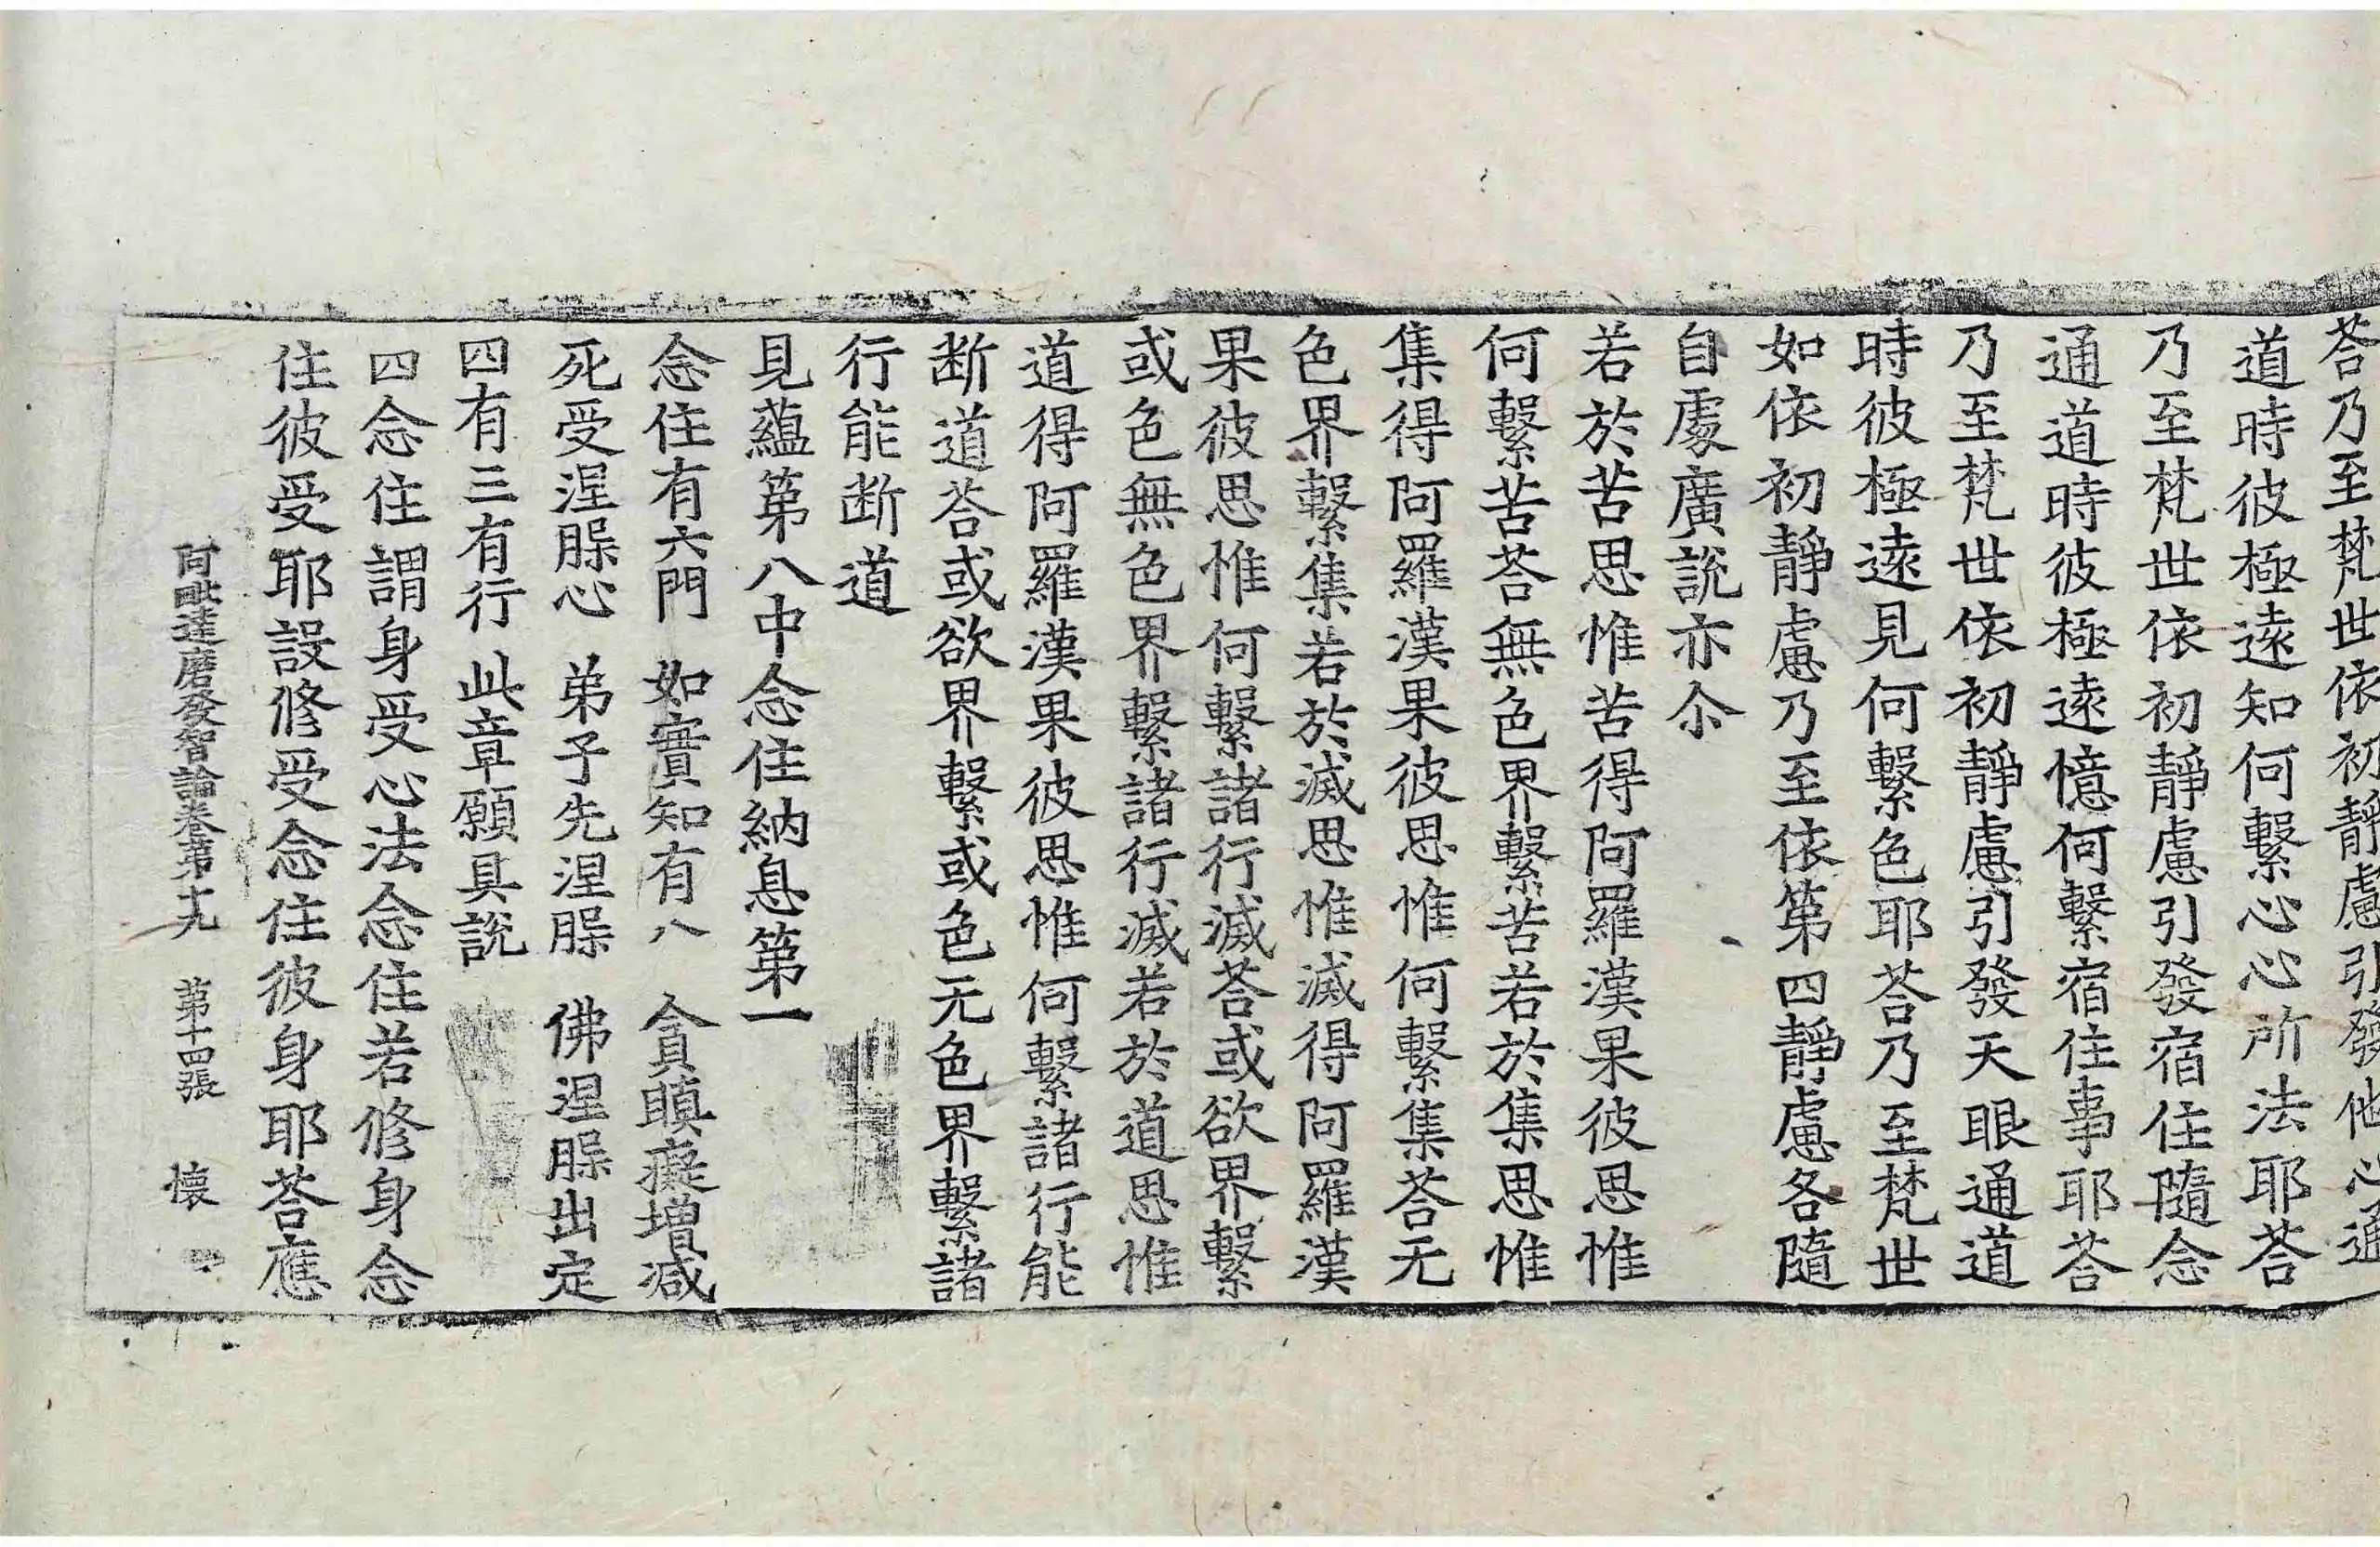 荅乃至梵世依初静慮引發他心通
道時彼極遠知何繫心心所法耶荅
乃至梵世依初静慮引發宿住隨念
通道時彼極遠憶何繫宿住事耶荅
乃至梵世依初静慮引發天眼通道
時彼極遠見何繫色耶荅乃至梵世
如依初静慮乃至依第四静慮各隨
自處廣說亦尒
若於苦思惟苦得阿羅漢果彼思惟
何繫苦荅無色界繫苦若於集思惟
集得阿羅漢果彼思惟何繫集荅无
色界繫集若於滅思惟滅得阿羅漢
果彼思惟何繫諸行滅荅或欲界繫
或色無色界繫諸行滅若於道思惟
道得阿羅漢果彼思惟何繫諸行能
断道荅或欲界繫或色无色界繫諸
行能断道
見蘊第八中念住納息第一
念住有六門 如實知有八 貪瞋癡增减
死受涅槃心 弟子先涅槃 佛涅槃出定
四有三有行 此章願具說
四念住謂身受心法念住若修身念
住彼受耶設修受念住彼身耶荅應
阿毗達磨發智論卷第十九 第十四張 懐